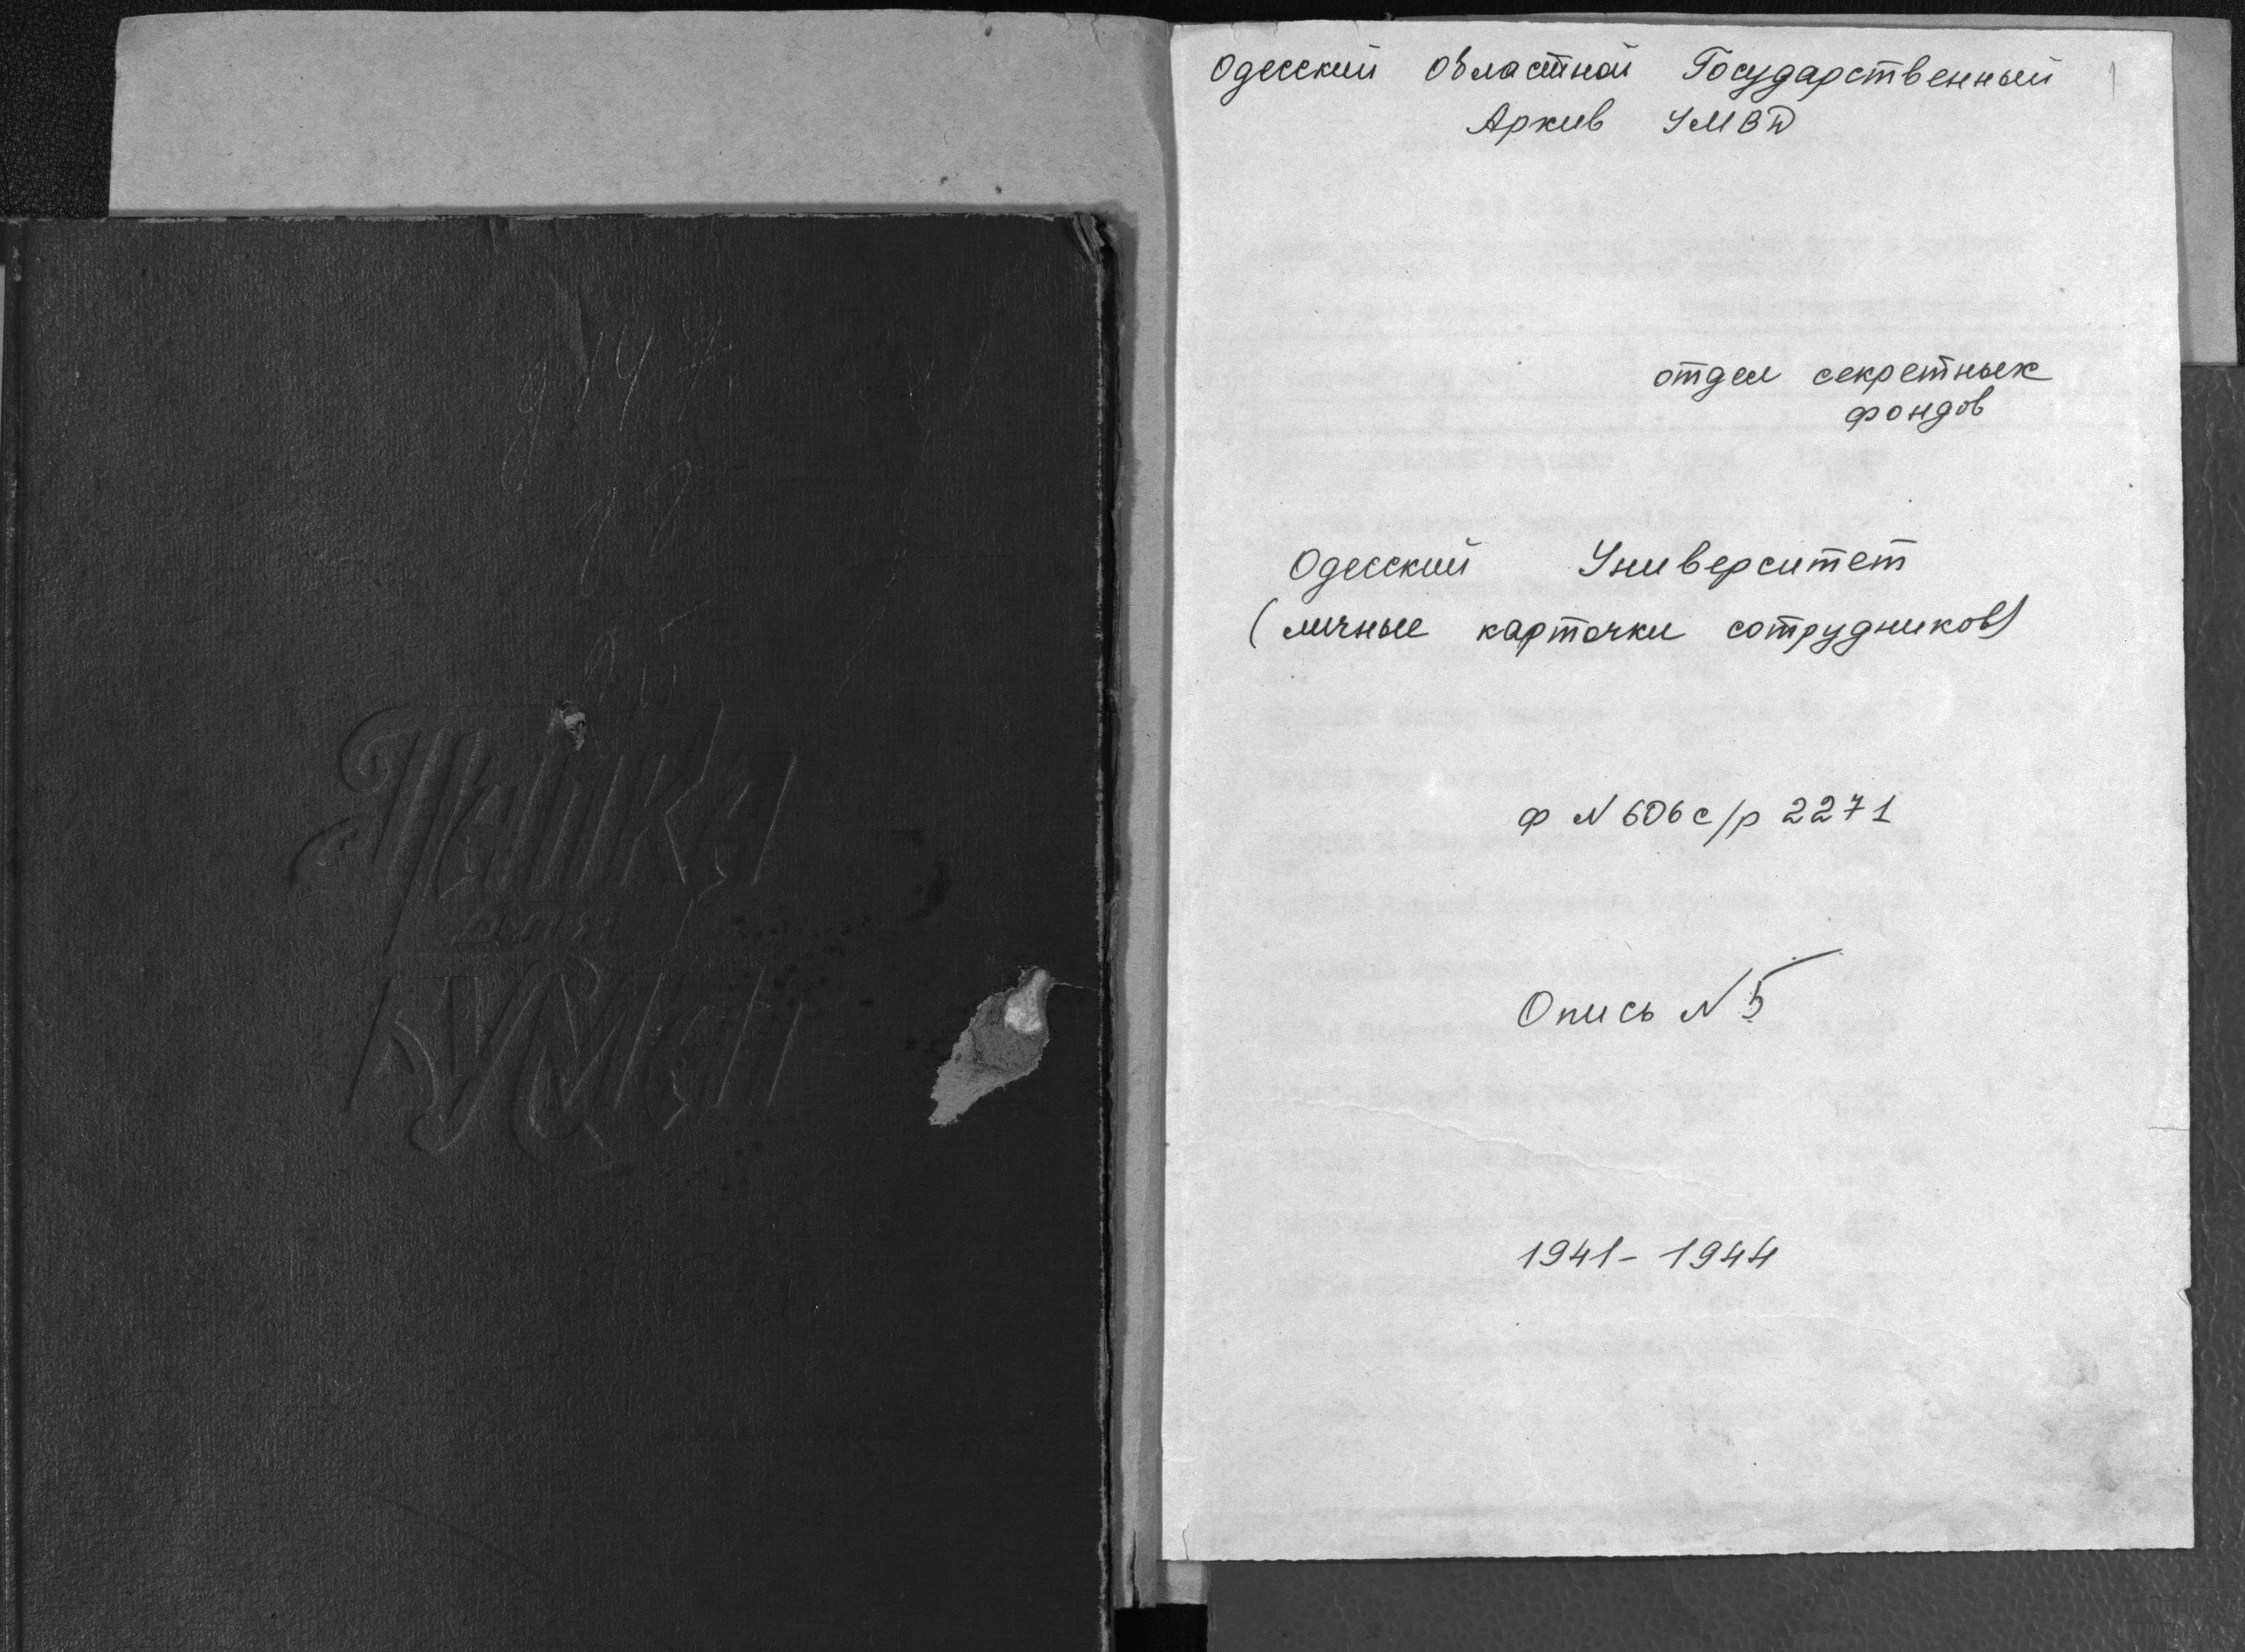 Папка
для
бумаг
1
Одесский Областной Государственный
Архив УМВД
отдел секретных
фондов
Одесский Университет
(личные карточки сотрудников)
ф N 606с/р 2271
Опись N 5
1941- 1944